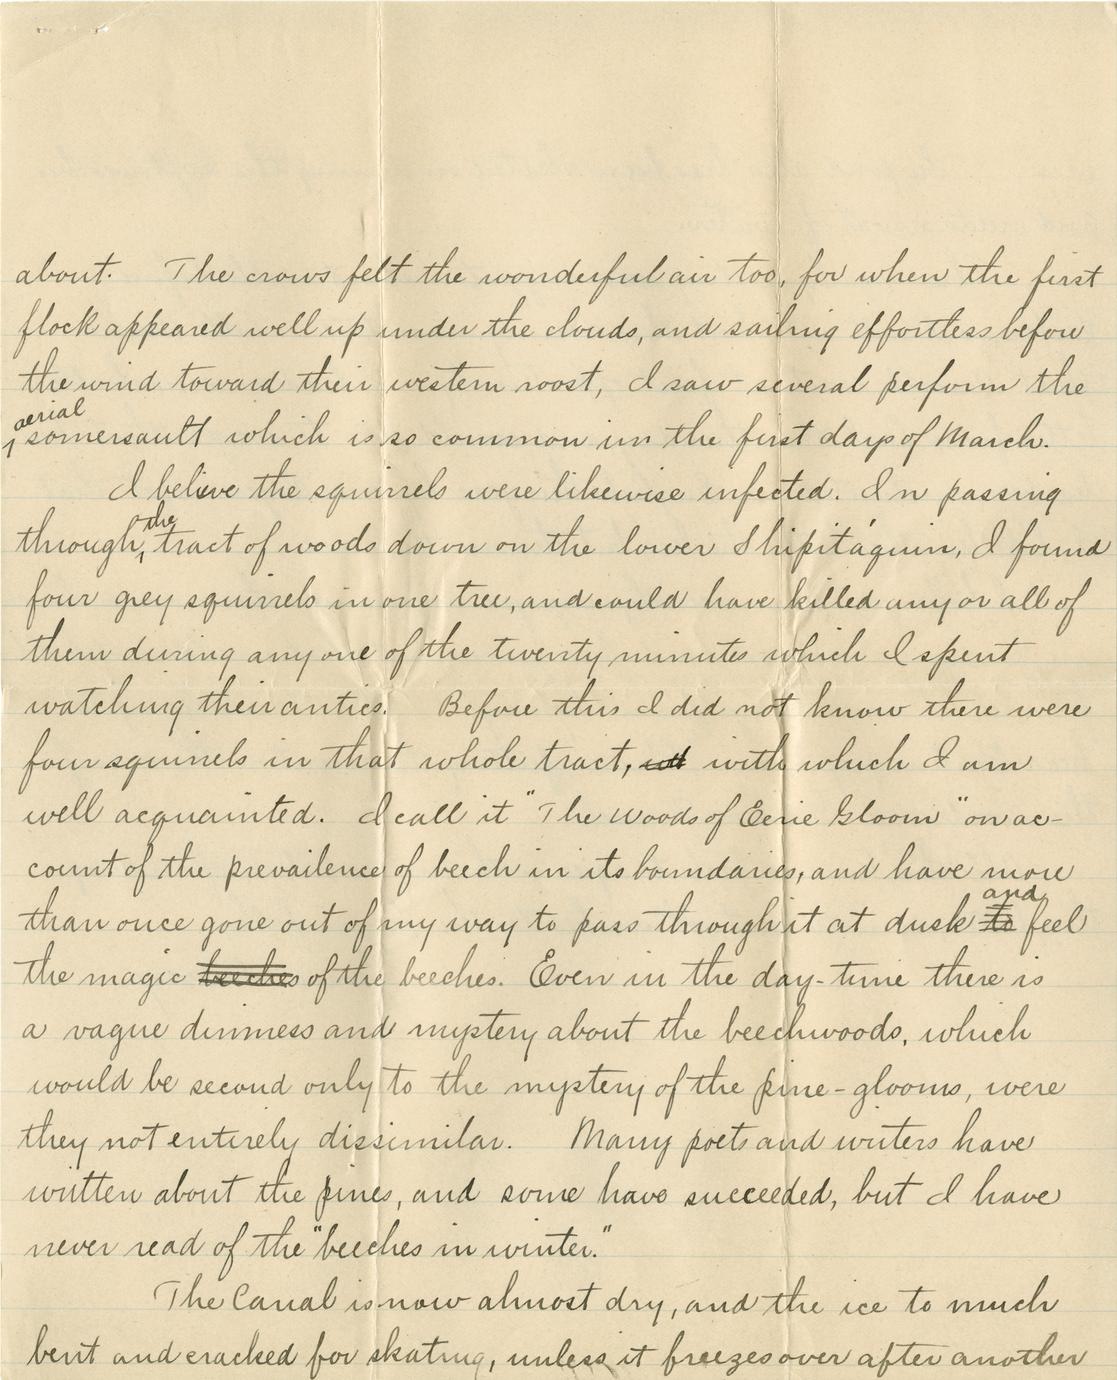 about. The crows felt the wonderful air too, for when the first
flock appeared well up under the clouds, and sailing effortless before
the wind toward their western roost, I saw several perform the
aerial
somersault which is so common in the first days of March.
I believe the squirrels were likewise infected. In passing
the
through tract of woods down on the lower Shipitaquin, I found
four grey squirrels in one tree, and could have killed any or all of
them during any one of the twenty minutes which I spent
watching their antics. Before this I did not know there were
four squirrels in that whole tract, wit with which I am
well acquainted. I call it "The Woods of Eerie Gloom" on ac-
count of the prevailence of beech in its boundaries, and have more
and
than once gone out of my way to pass through it at dusk to feel
the magic beeches of the beeches. Even in the day-time there is
a vague dimness and mystery about the beechwoods, which
would be second only to the mystery of the pine-glooms, were
they not entirely dissimilar. Many poets and writers have
written about the pines, and some have succeeded, but I have
never read of the "beeches in winter."
The Canal is now almost dry, and the ice to much
bent and cracked for skating, unless it freezes over after another